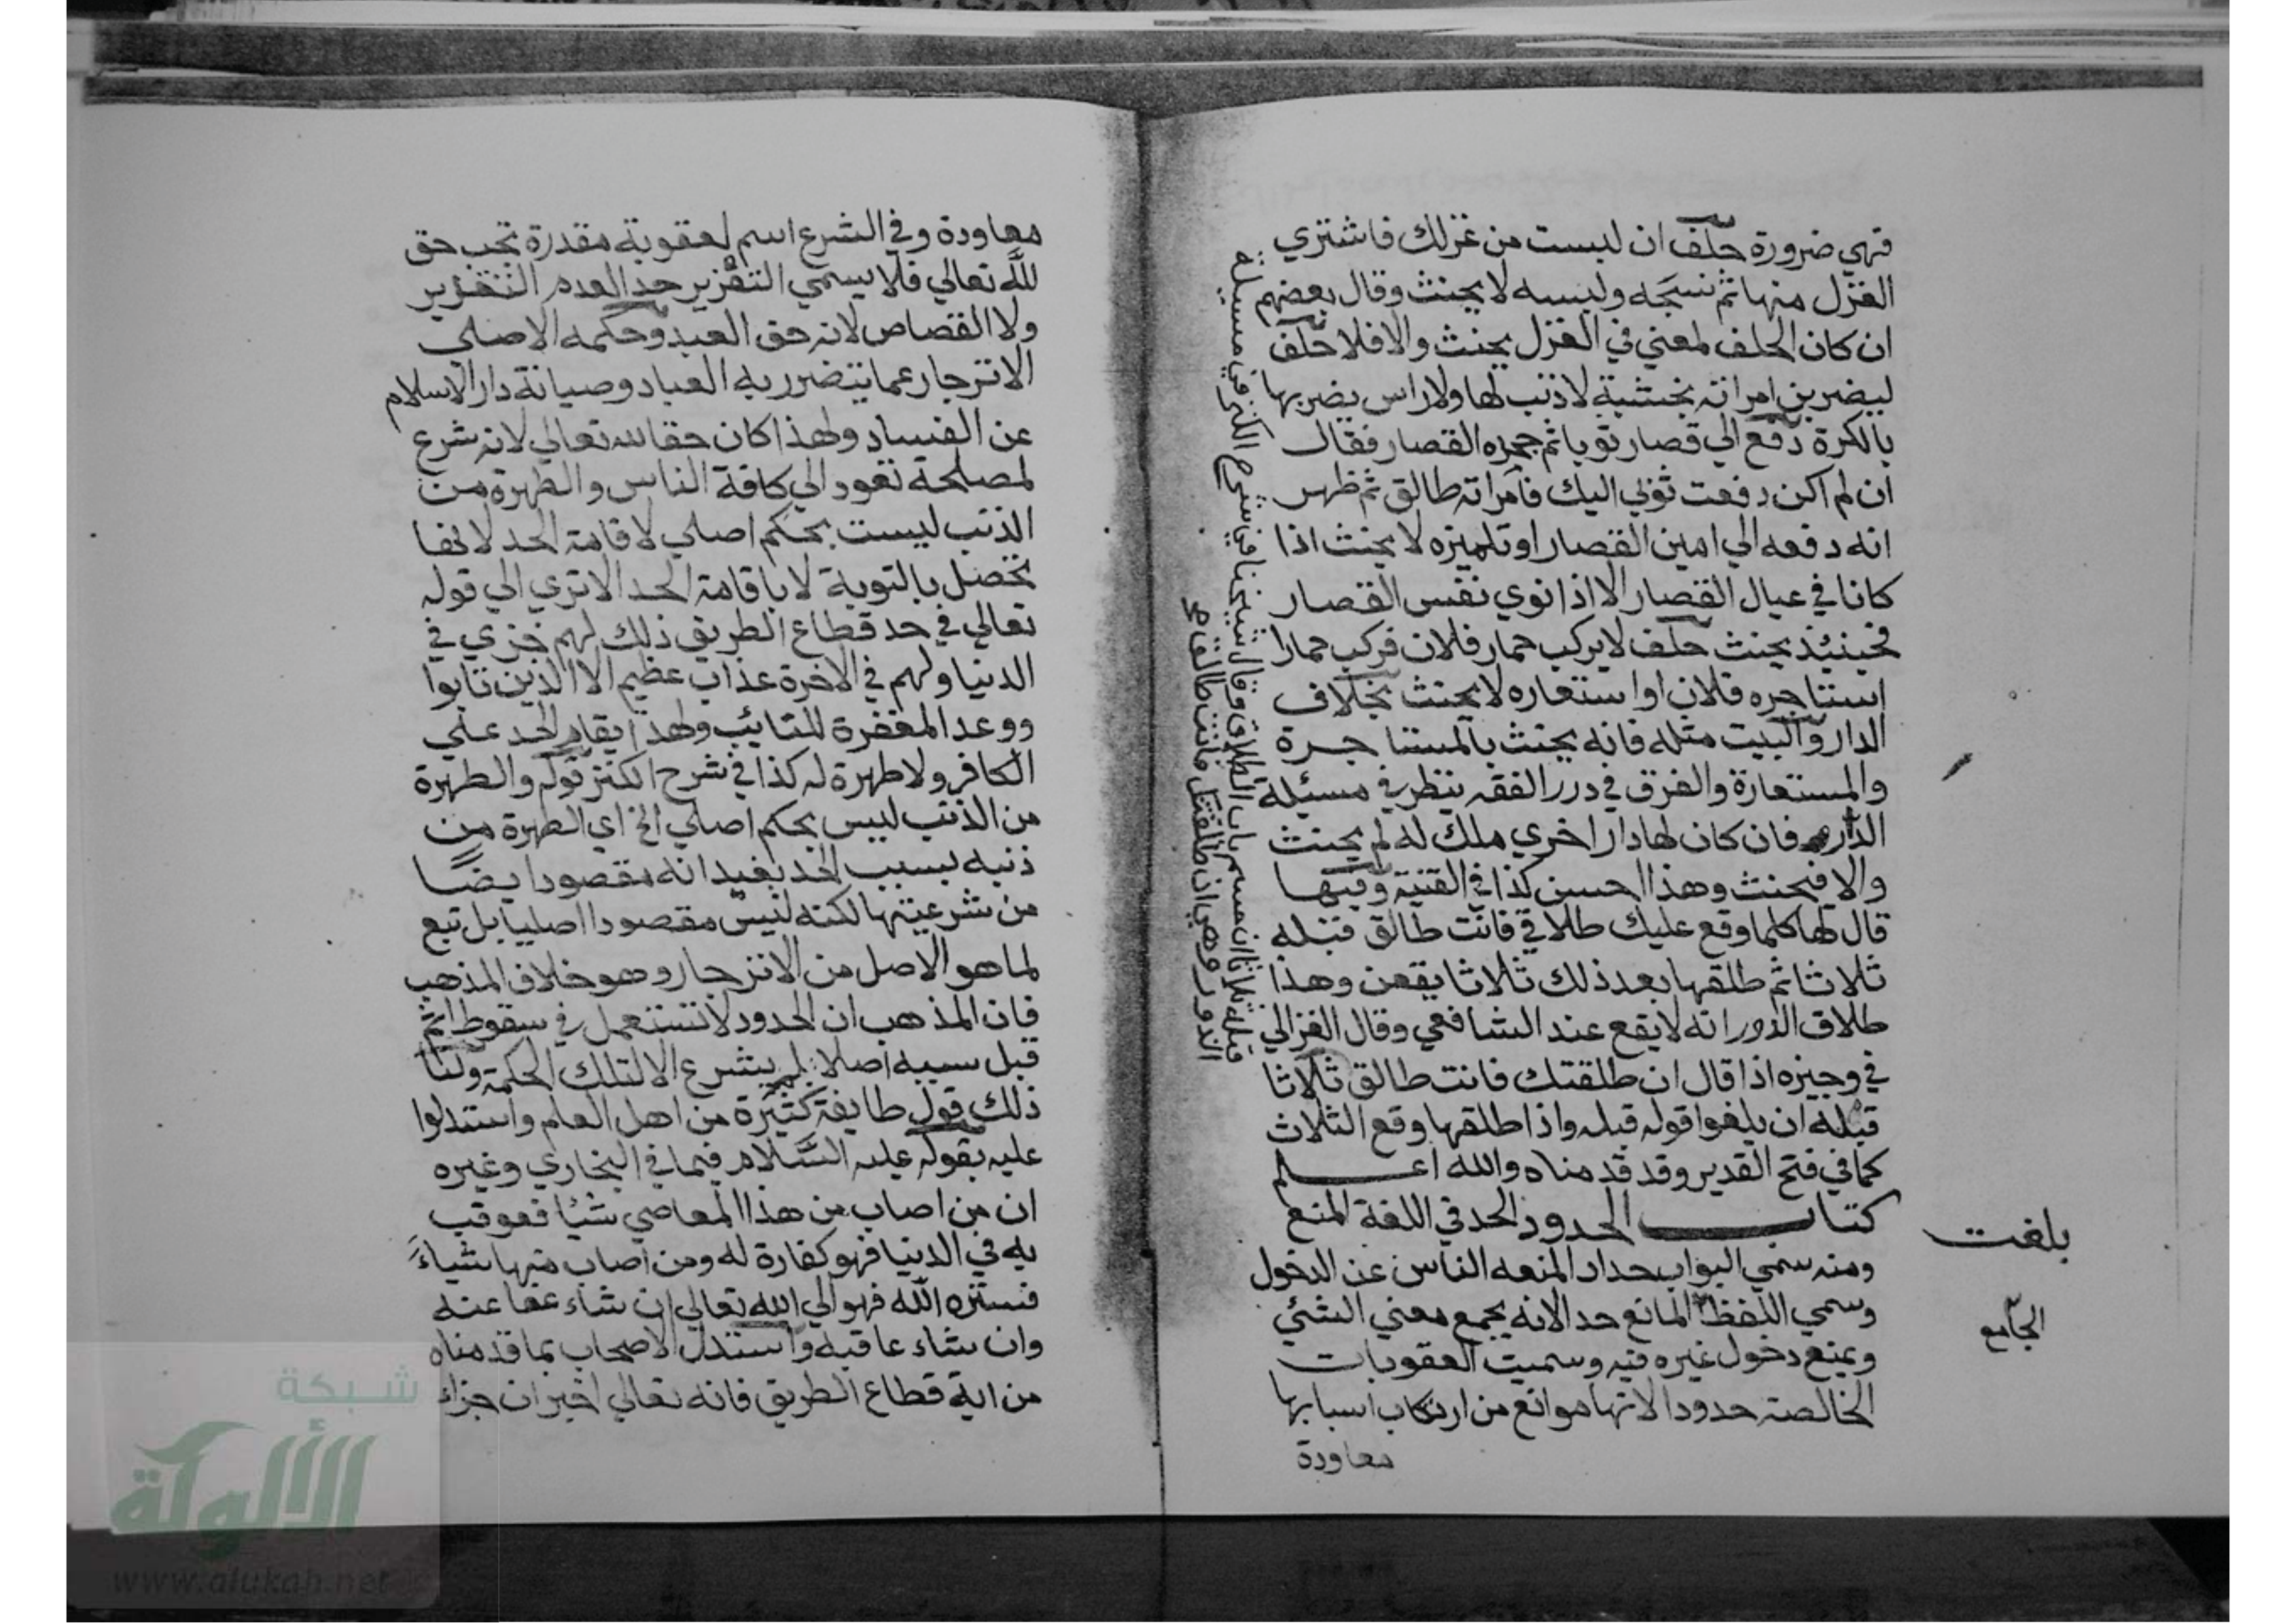 فهي ضرورة حلف ان لبست من غزلك فاشتري
الغزل منها ثم نسجه ولبسه لا يحنث وقال بعضهم
ان كان الحلف لمعني في الغزل يحنث والا فلا حلف
ليضربن امراته بخشبة لا ذنب لها ولا راس يضربها
بالكرة دفع الي قصار ثوبا ثم جحده القصار فقال
ان لم اكن دفعت ثوبي اليك فامراته طالق ثم ظهر
انه دفعه الي امين القصار او تلميذه لا يحنث اذا
كانا في عيال القصار الا اذا نوي نفس القصار
فحينئذ يحنث حلف لا يركب حمار فلان فركب حمارا
استاجره فلان او استعاره لا يحنث بخلاف
الدار والبيت مثله فانه يحنث بالمستاجرة
والمستعارة والفرق في درر الفقه ينظر في مسئلة
الدار فان كان لها دار اخري ملك له لم يحنث
والا فيحنث وهذا احسن كذا في القنية وفيها
قال لها كلما وقع عليك طلاقي فانت طالق قبله
ثلاثا ثم طلقها بعد ذلك ثلاثا يقعن وهذا
طلاق الدور انه لا يقع عند الشافعي وقال الغزالي
في وجيزه اذا قال ان طلقتك فانت طالق ثلاثا
قبله ان يلغوا قوله قبله واذا طلقها وقع الثلاث
كما في فتح القدير وقد قدمناه والله اعلم
كتاب الحدود الحد في اللغة المنع
ومنه سمي البواب حدادا لمنعه الناس عن الدخول
وسمي اللفظ المانع حدا لانه يجمع معني الشئ
ويمنع دخول غيره فيه وسميت العقوبات
الخالصة حدودا لانها موانع من ارتكاب اسبابها
معاودة
بلغت
الجامع
قبله ثلاثا ان قسم باب الطلاق وقال شيخنا في شرح الكنز في مسيلة
الدور وهي ان طلقتك فانت طالق
معاودة وفي الشرع اسم لعقوبة مقدرة تجب حق
لله تعالي فلا يسمي التعزير حد العدم التقدير
ولا القصاص لانه حق العبد وحكمه الاصلي
الانزجار عما يتضرر به العباد وصيانة دار الاسلام
عن الفساد ولهذا كان حقا لله تعالي لانه شرع
لمصلحة تعود الي كافة الناس والطهرة من
الذنب ليست بحكم اصلي لاقامة الحد لانها
تحصل بالتوبة لا باقامة الحد الا تري الي قوله
تعالي في حد قطاع الطريق ذلك لهم خزي في
الدنيا ولهم في الاخرة عذاب عظيم الا الذين تابوا
ووعد المغفرة للتايب ولهذا يقام الحد علي
الكافر ولا طهرة له كذا في شرح الكنز قوله والطهرة
من الذنب ليس بحكم اصلي الخ اي الطهرة من
ذنبه بسبب الحد يفيد انه مقصود ايضا
من شرعيتها لكنه ليس مقصودا اصليا بل تبع
لما هو الاصل من الانزجار وهو خلاف المذهب
فان المذهب ان الحدود لا تستعمل في سقوط اثم
قبل سببه اصلا بل لم يشرع الا لتلك الحكمة ولنا
ذلك قول طايفة كثيرة من اهل العلم واستدلوا
عليه بقوله عليه السلام فيما في البخاري وغيره
ان من اصاب من هذا المعاصي شيا فعوقب
به في الدنيا فهو كفارة له ومن اصاب منها شياء
فستره الله فهو الي الله تعالي ان شاء عفا عنه
وان شاء عاقبه واستدل الاصحاب بما قدمناه
من اية قطاع الطريق فانه تعالي اخبر ان جزاء
شبكة
الألوكة
www.alukah.net